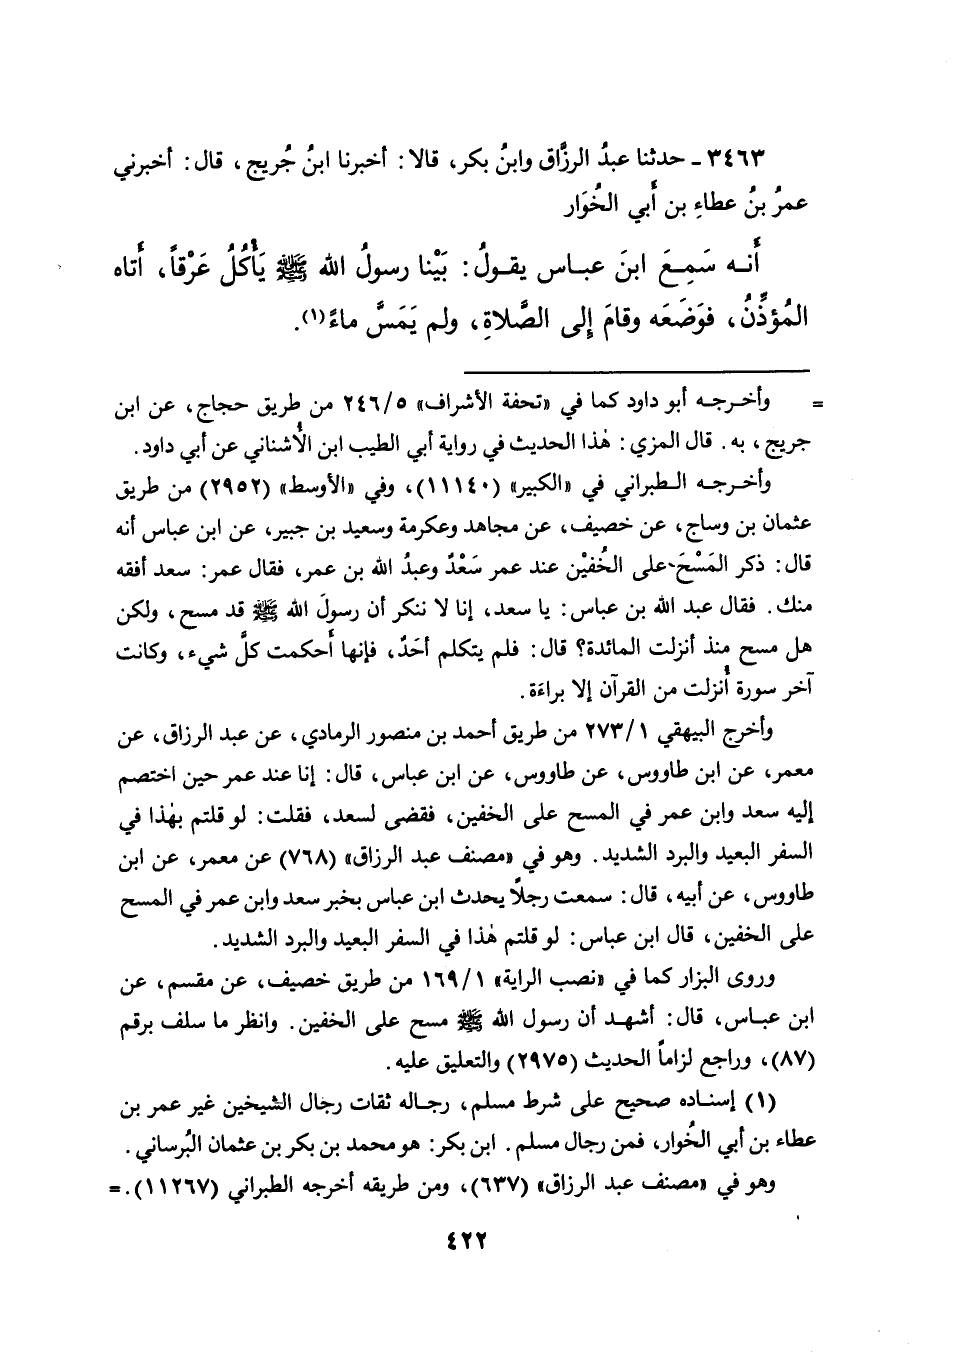 ٣٤٦٣ - حدثنا عبدُ الرزَّاق وابنُ بكر، قالا: أخبرنا ابنُ جُريج، قال: أخبرني
عمرُ بنُ عطاءِ بن أَبي الخُوَار
أَنه سَمِعَ ابنَ عباس يقولُ: بَيْنا رسولُ الله ﷺ يَأْكُلُ عَرْقاً، أَتاه
المُؤذِّنُ، فوَضَعَه وقامَ إِلى الصَّلاةِ، ولم يَمَسَّ ماءً(١).
= وأخرجه أبو داود كما في «تحفة الأشراف» ٢٤٦/٥ من طريق حجاج، عن ابن
جريج، به. قال المزي: هٰذا الحديث في رواية أبي الطيب ابن الأُشناني عن أبي داود.
وأخرجه الطبراني في «الكبير» (١١١٤٠)، وفي «الأوسط» (٢٩٥٢) من طريق
عثمان بن وساج، عن خصيف، عن مجاهد وعكرمة وسعيد بن جبير، عن ابن عباس أنه
قال: ذكر المَسْحَ على الخُفيْن عند عمر سَعْدٌ وعبدُ الله بن عمر، فقال عمر: سعد أفقه
منك. فقال عبد الله بن عباس: يا سعد، إنا لا ننكر أن رسولَ الله ﷺ قد مسح، ولكن
هل مسح منذ أنزلت المائدة؟ قال: فلم يتكلم أحَدٌ، فإنها أَحكمت كلَّ شيء، وكانت
آخر سورة أُنزلت من القرآن إلا براءَة.
وأخرج البيهقي ٢٧٣/١ من طريق أحمد بن منصور الرمادي، عن عبد الرزاق، عن
معمر، عن ابن طاووس، عن طاووس، عن ابن عباس، قال: إنا عند عمر حين اختصم
إليه سعد وابن عمر في المسح على الخفين، فقضى لسعد، فقلت: لو قلتم بهٰذا في
السفر البعيد والبرد الشديد. وهو في «مصنف عبد الرزاق» (٧٦٨) عن معمر، عن ابن
طاووس، عن أبيه، قال: سمعت رجلاً يحدث ابن عباس بخبر سعد وابن عمر في المسح
على الخفين، قال ابن عباس: لو قلتم هٰذا في السفر البعيد والبرد الشديد.
وروى البزار كما في «نصب الراية» ١٦٩/١ من طريق خصيف، عن مقسم، عن
ابن عباس، قال: أشهد أن رسول الله ﷺ مسح على الخفين. وانظر ما سلف برقم
(٨٧)، وراجع لزاماً الحديث (٢٩٧٥) والتعليق عليه.
(١) إسناده صحيح على شرط مسلم، رجاله ثقات رجال الشيخين غير عمر بن
عطاء بن أبي الخُوار، فمن رجال مسلم. ابن بكر: هو محمد بن بكر بن عثمان البُرساني.
وهو في «مصنف عبد الرزاق» (٦٣٧)، ومن طريقه أخرجه الطبراني (١١٢٦٧). =
٤٢٢